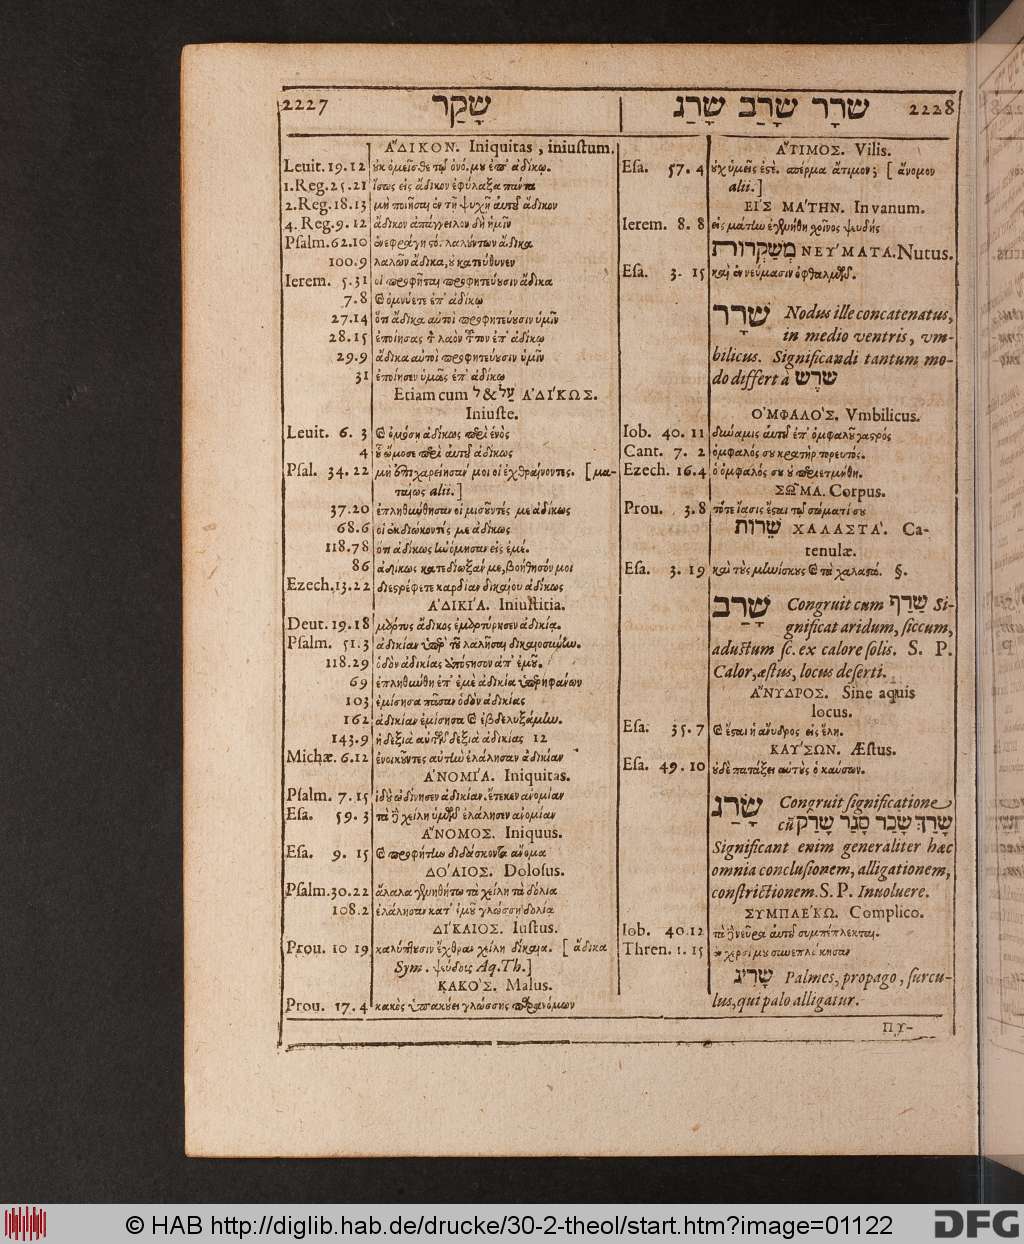 2227 שָׁקַר
ἌΔΙΚΟΝ. Iniquitas, iniustum.
Leuit. 19.12 οὐκ ὀμεῖσθε τῷ ὀνό. μου ἐπ' ἀδίκῳ.
1. Reg. 25.21 ἴσως εἰς ἄδικον ἐφύλαξα πάντα
2. Reg. 18.13 μὴ ποιῆσαι ἐν τῇ ψυχῇ αὐτοῦ ἄδικον
4. Reg. 9.12 ἄδικον ἀπάγγειλον δὴ ἡμῖν
Psalm. 62.10 ἐνεφράγη στό. λαλούντων ἄδικα
100.9 λαλῶν ἄδικα, οὐ κατεύθυνεν
Ierem. 5.31 οἱ προφῆται προφητεύουσιν ἄδικα
7.8 καὶ ὀμνύετε ἐπ' ἀδίκῳ
27.14 ὅτι ἄδικα αὐτοὶ προφητεύουσιν ὑμῖν
28.15 ἐποίησας τὸν λαὸν τοῦτον ἐπ' ἀδίκῳ
29.9 ἄδικα αὐτοὶ προφητεύουσιν ὑμῖν
31 ἐποίησεν ὑμᾶς ἐπ' ἀδίκῳ
Etiam cum ל & עַל ἈΔΊΚΩΣ.
Iniuste.
Leuit. 6.3 καὶ ὀμόσῃ ἀδίκως περὶ ἑνὸς
4 οὗ ὤμοσε περὶ αὐτοῦ ἀδίκως
Psal. 34.22 μὴ ἐπιχαρείησάν μοι οἱ ἐχθραίνοντες. [μα-
ταίως alii.]
37.20 ἐπληθύνθησαν οἱ μισοῦντές με ἀδίκως
68.6 οἱ ἐκδιώκοντές με ἀδίκως
118.78 ὅτι ἀδίκως ἠνόμησαν εἰς ἐμέ.
86 ἀδίκως κατεδίωξάν με, βοήθησόν μοι
Ezech. 13.22 διεστρέφετε καρδίαν δικαίου ἀδίκως
ἈΔΙΚΊΑ. Iniustitia.
Deut. 19.18 μάρτυς ἄδικος ἐμαρτύρησεν ἀδικία.
Psalm. 51.3 ἀδικίαν ὑπὲρ τοῦ λαλῆσαι δικαιοσύνην.
118.29 ὁδὸν ἀδικίας ἀπόστησον ἀπ' ἐμοῦ.
69 ἐπληθύνθη ἐπ' ἐμὲ ἀδικία ὑπερηφάνων
103 ἐμίσησα πᾶσαν ὁδὸν ἀδικίας
162 ἀδικίαν ἐμίσησα καὶ ἐβδελυξάμην.
143.9 ἡ δεξιὰ αὐτῶν δεξιὰ ἀδικίας 12
Michæ. 6.12 ἐνοικοῦντες αὐτὴν ἐλάλησαν ἀδικίαν
ἈΝΟΜΊΑ. Iniquitas.
Psalm. 7.15 ἰδοὺ ὠδίνησεν ἀδικίαν. ἔτεκεν ἀνομίαν
Esa. 59.3 τὰ δὲ χείλη ὑμῶν ἐλάλησεν ἀνομίαν
ἌΝΟΜΟΣ. Iniquus.
Esa. 9.15 καὶ προφήτην διδάσκοντα ἄνομα
ΔΌΛΙΟΣ. Dolosus.
Psalm. 30.22 ἄλαλα γενηθήτω τὰ χείλη τὰ δόλια
108.2 ἐλάλησαν κατ' ἐμοῦ γλώσσῃ δολία
ΔΊΚΑΙΟΣ. Iustus.
Prou. 10 19 καλύπτουσιν ἔχθραν χείλη δίκαια. [ἄδικα
Sym. ψευδοῦς Aq. Th.]
ΚΑΚΌΣ. Malus.
Prou. 17.4 κακὸς ὑπακούει γλώσσης παρανόμων
שָׂרַג שָׁרַב שׁרָר 2228
ἌΤΙΜΟΣ. Vilis.
Esa. 57.4 οὐχ ὑμεῖς ἐστὲ. σπέρμα ἄτιμον; [ἄνομον
alii.]
ΕΙΣ ΜΆΤΗΝ. In vanum.
Ierem. 8.8 εἰς μάτην ἐγενήθη σχοῖνος ψευδής
מְשַׂקְּרוֹת ΝΕΎΜΑΤΑ. Nutus.
Esa. 3.15 καὶ ἐν νεύμασιν ὀφθαλμῶν.
שׁרָר Nodus ille concatenatus,
in medio ventris, vm-
bilicus. Significandi tantum mo-
do differt à שׁרֶשׁ
ὈΜΦΑΛΌΣ. Vmbilicus.
Iob. 40.11 δύναμις αὐτοῦ ἐπ' ὀμφαλοῦ γαστρός
Cant. 7.2 ὀμφαλός σου κρατὴρ τορευτός.
Ezech. 16.4 ὁ ὀμφαλός σου οὐ περιετμήθη.
ΣΩ͂ΜΑ. Corpus.
Prou. 3.8 τότε ἴασις ἔσται τῷ σώματί σου
שֵׁרוֹת ΧΑΛΑΣΤΆ. Ca-
tenulæ.
Esa. 3.19 καὶ τοὺς μηνίσκους καὶ τὰ χαλαστά. §.
שָׁרַב Congruit cum שָׂרַף Si-
gnificat aridum, siccum,
adustum sc. ex calore solis. S. P.
Calor, æstus, locus deserti.
ἌΝΥΔΡΟΣ. Sine aquis
locus.
Esa. 35.7 καὶ ἔσται ἡ ἄνυδρος εἰς ἕλη.
ΚΑΎΣΩΝ. Æstus.
Esa. 49.10 οὐδὲ πατάξει αὐτοὺς ὁ καύσων.
שָׂרַג Congruit significatione
cũ שָׂרַךְ שָׂכַר סָגַר שָׂרַק
Significant enim generaliter hæc
omnia conclusionem, alligationem,
constrictionem. S. P. Inuoluere.
ΣΥΜΠΛΈΚΩ. Complico.
Iob. 40.12 τὰ δὲ νεῦρα αὐτοῦ συμπέπλεκται.
Thren. 1.15 ἐν χερσί μου συνεπλάκησαν
שָׂרִיג Palmes, propago, surcu-
lus, qui palo alligatur.
ΠΥ-
© HAB http://diglib.hab.de/drucke/30-2-theol/start.htm?image=01122
DFG